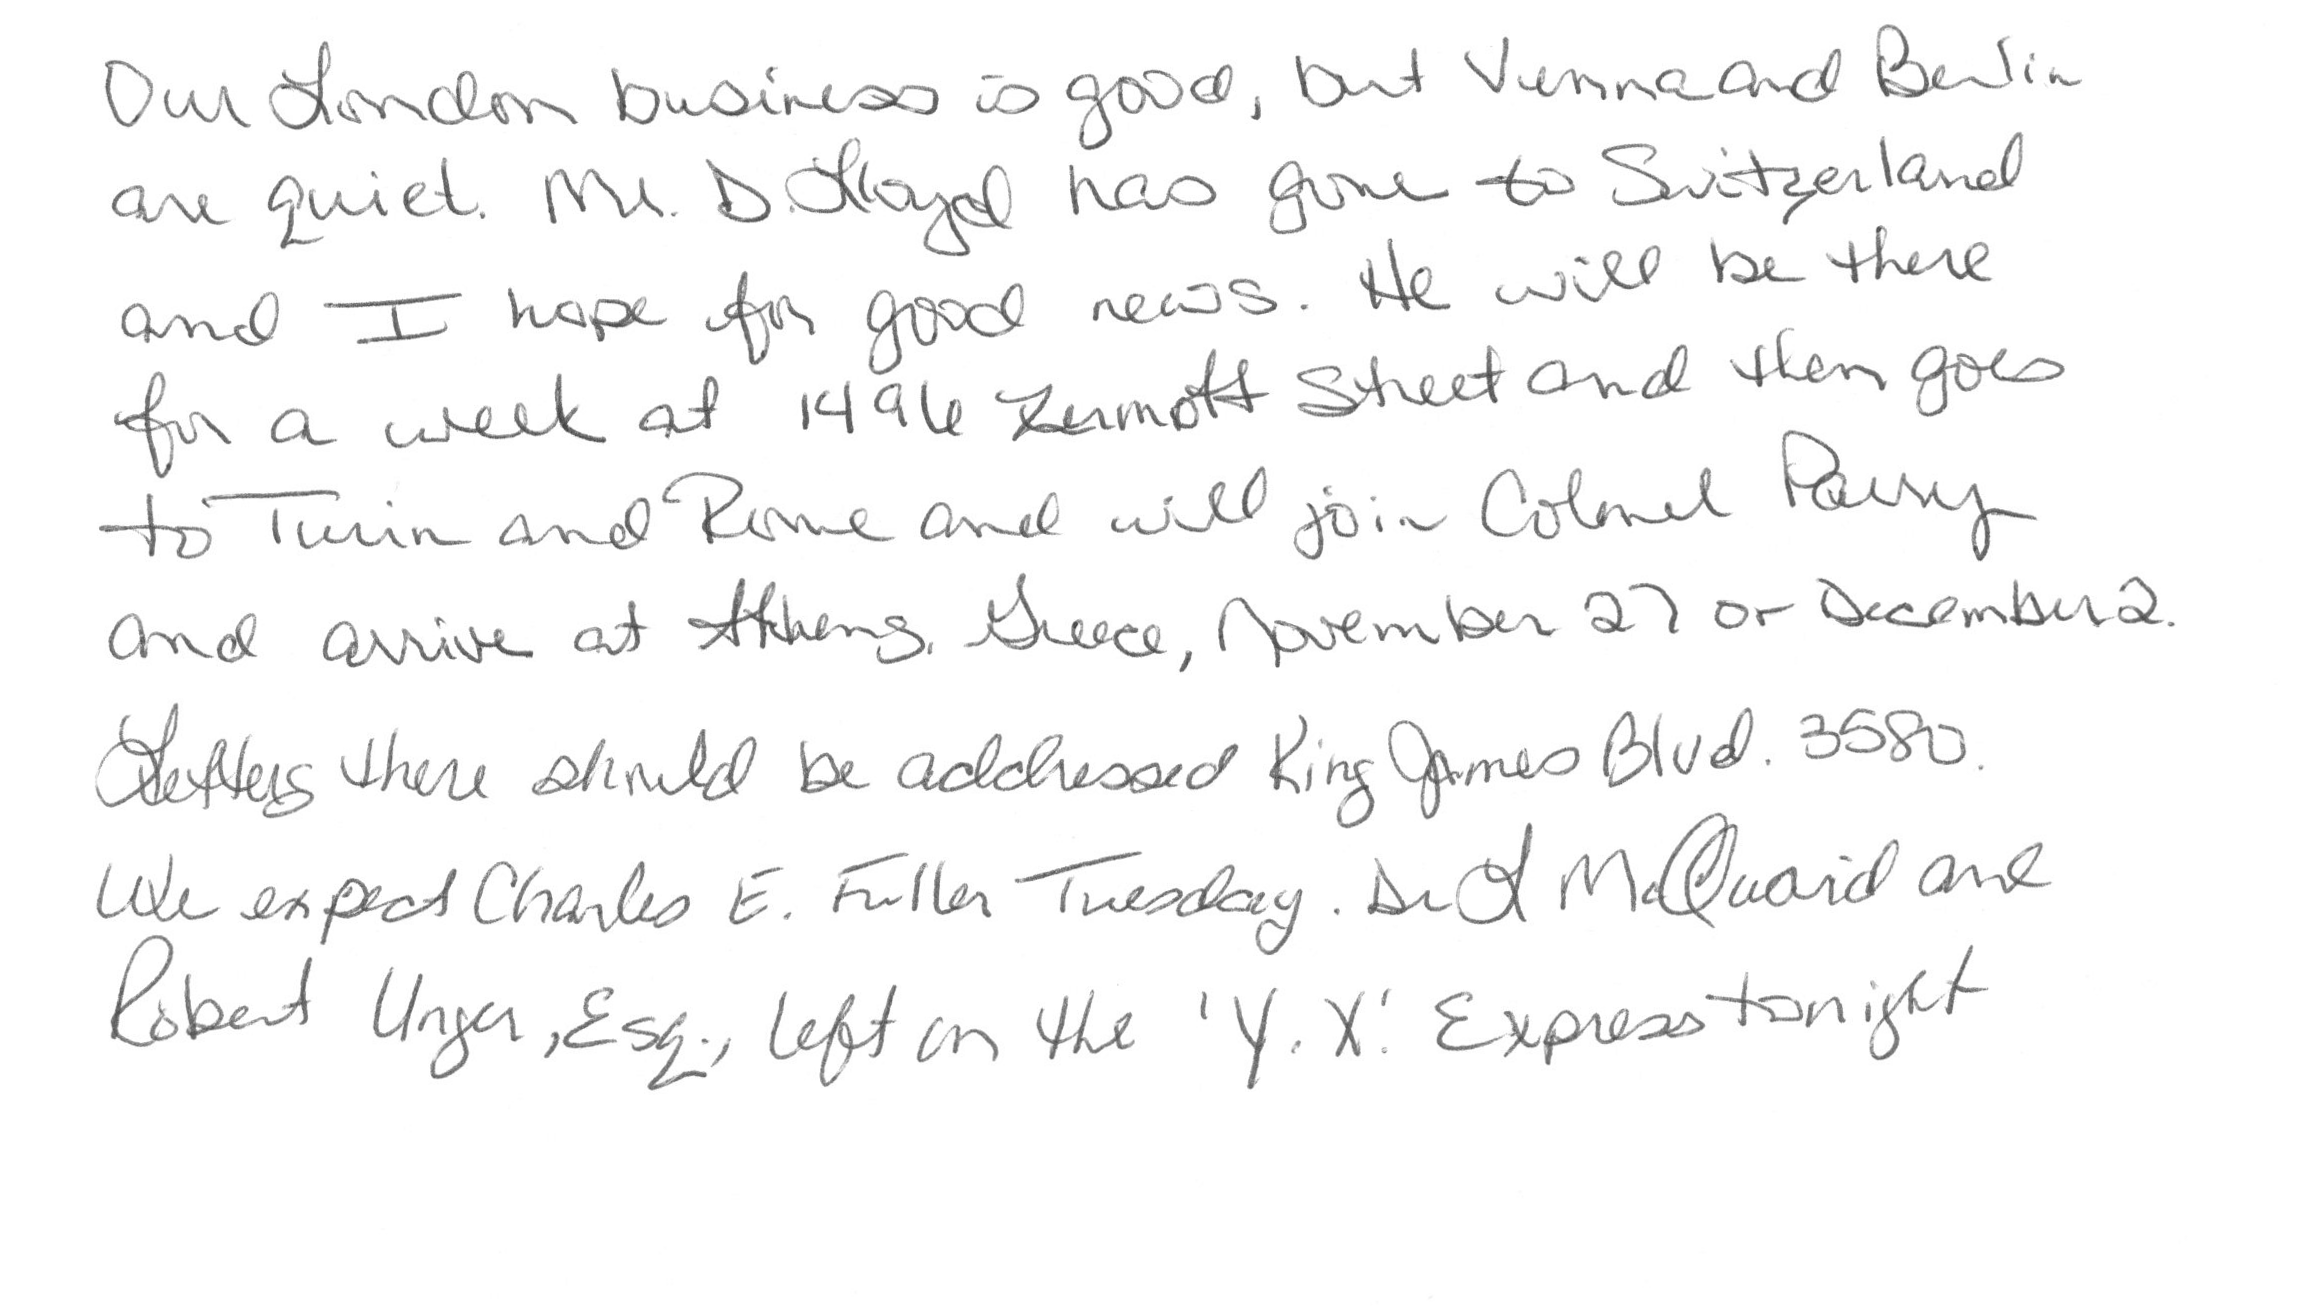 Our London business is good, but Vienna and Berlin
are quiet. Mr. D. Lloyd has gone to Switzerland
and I hope for good news. He will be there
for a week at 1496 Zermott Street and then goes
to Turin and Rome and will join Colonel Parry
and arrive at Athens, Greece, November 27 or December 2.
Letters there should be addressed King James Blvd. 3580.
We expect Charles E. Fuller Tuesday. Dr L McQuaid and
Robert Unger, Esq., left on the 'Y. X.' Express tonight